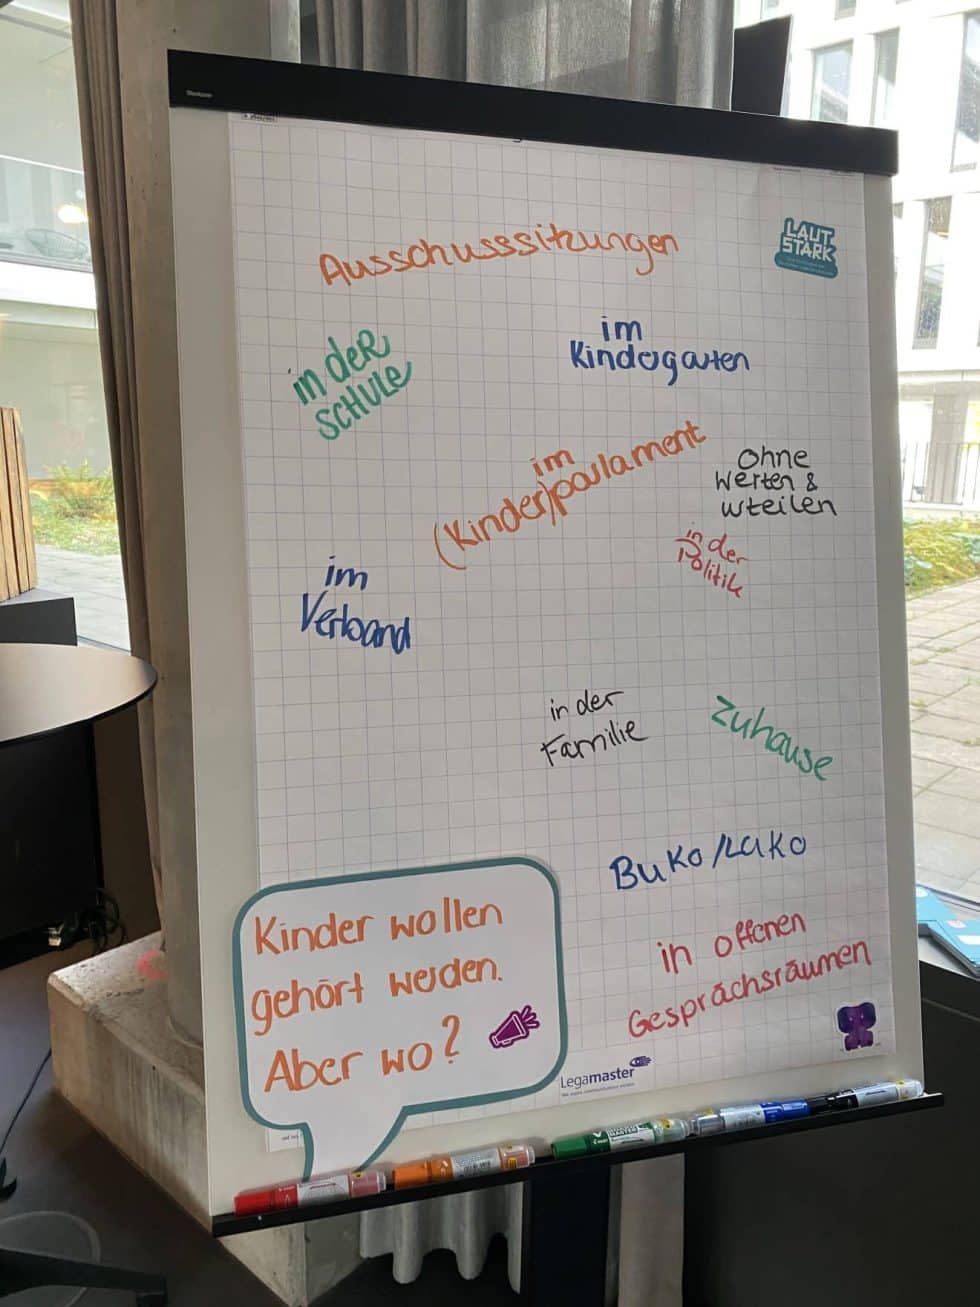 Ausschusssitzungen
LAUT
STARK
in der
SCHULE
im
Kindergarten
im
(Kinder)parlament
ohne
Werten &
urteilen
in der
Politik
im
Verband
in der
Familie
Zuhause
BuKo/LaKo
in offenen
Gesprächsräumen
Kinder wollen
gehört werden.
Aber wo?
Legamaster